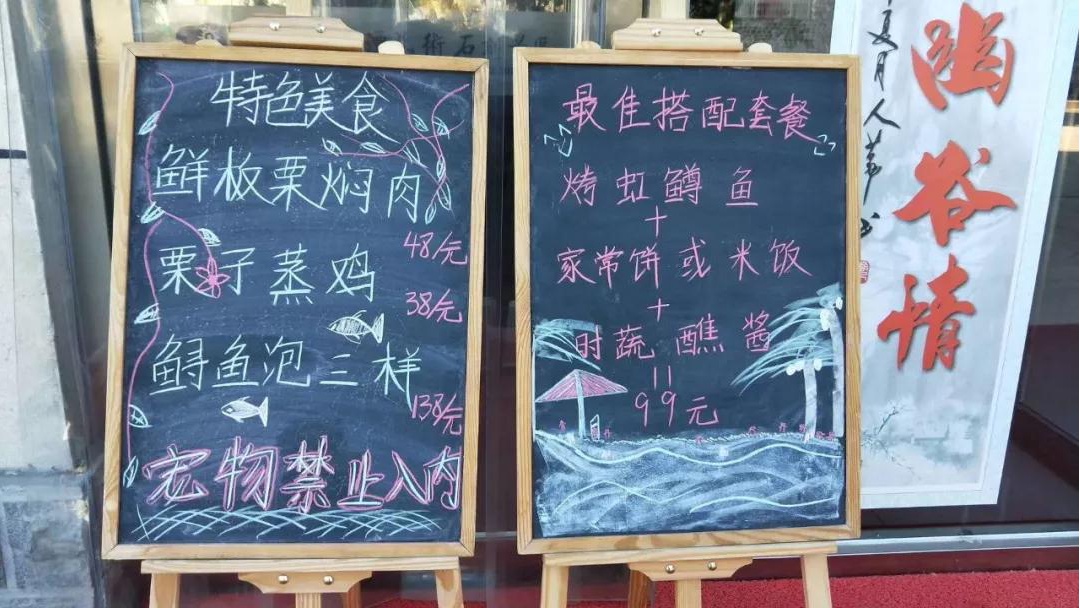 特色美食
鲜板栗焖肉
48/元
栗子蒸鸡
38/元
鲟鱼泡三样
138/元
宠物禁止入内
最佳搭配套餐
烤虹鳟鱼
+
家常饼或米饭
+
时蔬醮酱
=
99元
幽谷情